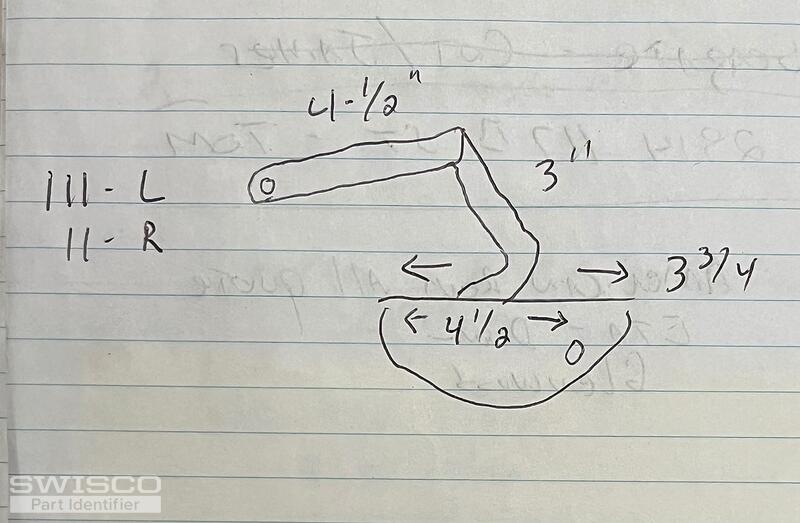 4-1/2"
3"
III - L
II - R
3 3/4
← 4 1/2 →
SWISCO
Part Identifier